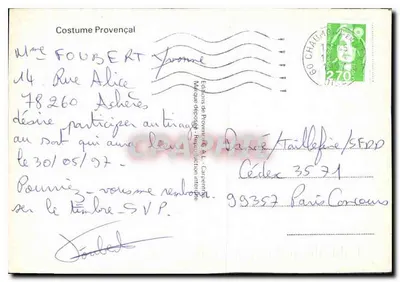 Costume Provençal
Mme FOUBERT Yvonne
14 Rue Alice
78260 Achères
désire participer au tirage
au sort qui aura lieu
le 30/05/97.
Pourriez-vous me rembourser
le timbre - SVP.
Foubert
Editions de Provence
60 CHAU
2,70
Danse/Taillefine/SFDD
Cédex 3571
99357 Paris Concours